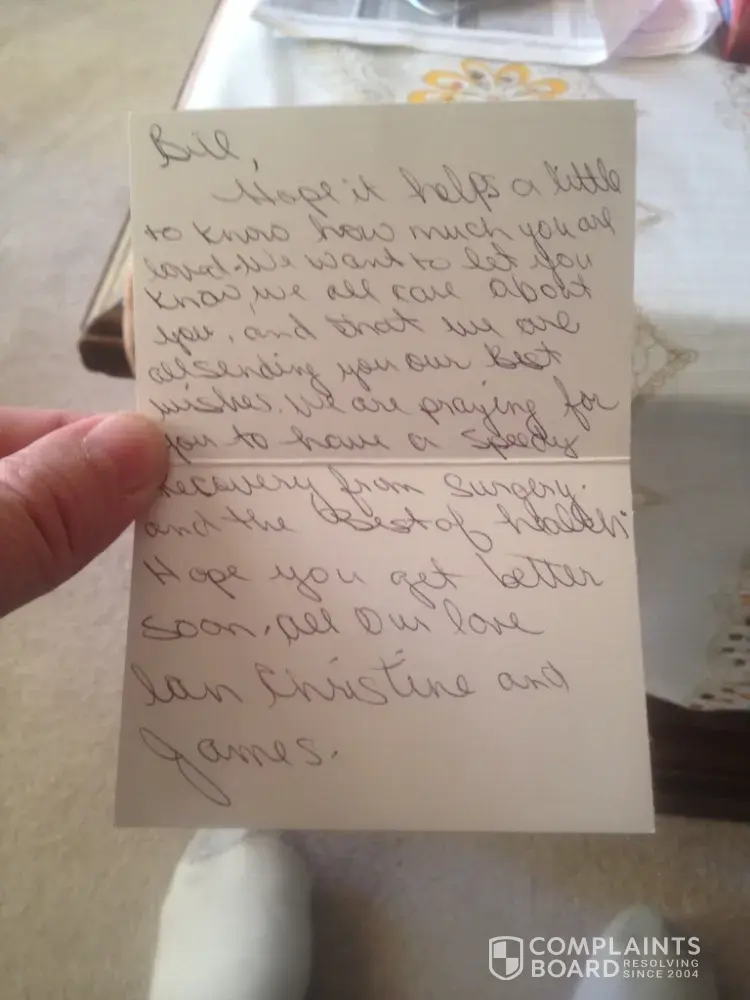 Bill,
Hope it helps a little
to know how much you are
loved. We want to let you
know, we all care about
you, and that we are
all sending you our Best
wishes. We are praying for
you to have a speedy
recovery from surgery.
and the Best of health.
Hope you get better
soon. all our love
Ian Christine and
James.
COMPLAINTS
BOARD RESOLVING
SINCE 2004